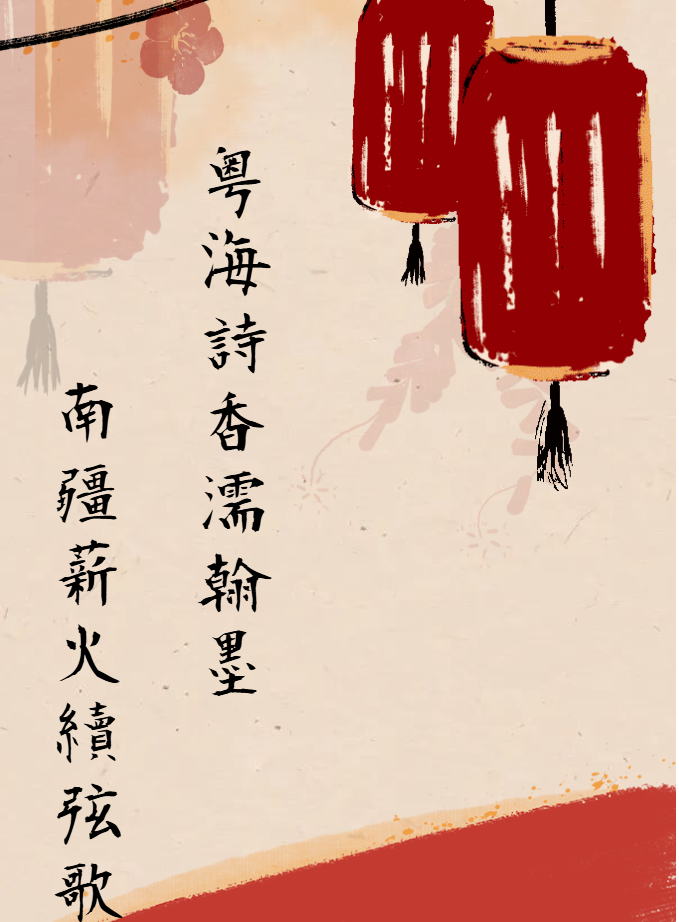 粤海詩香濡翰墨
南疆薪火續弦歌